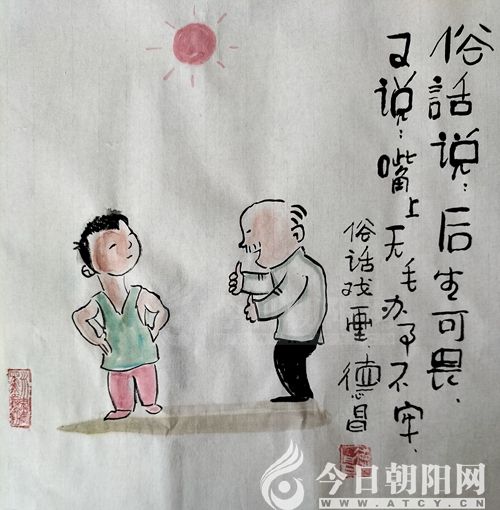 俗話说：后生可畏、
又说：嘴上无毛办事不牢、
俗话戏畫、德昌
今日朝阳网
WWW.ATCY.COM